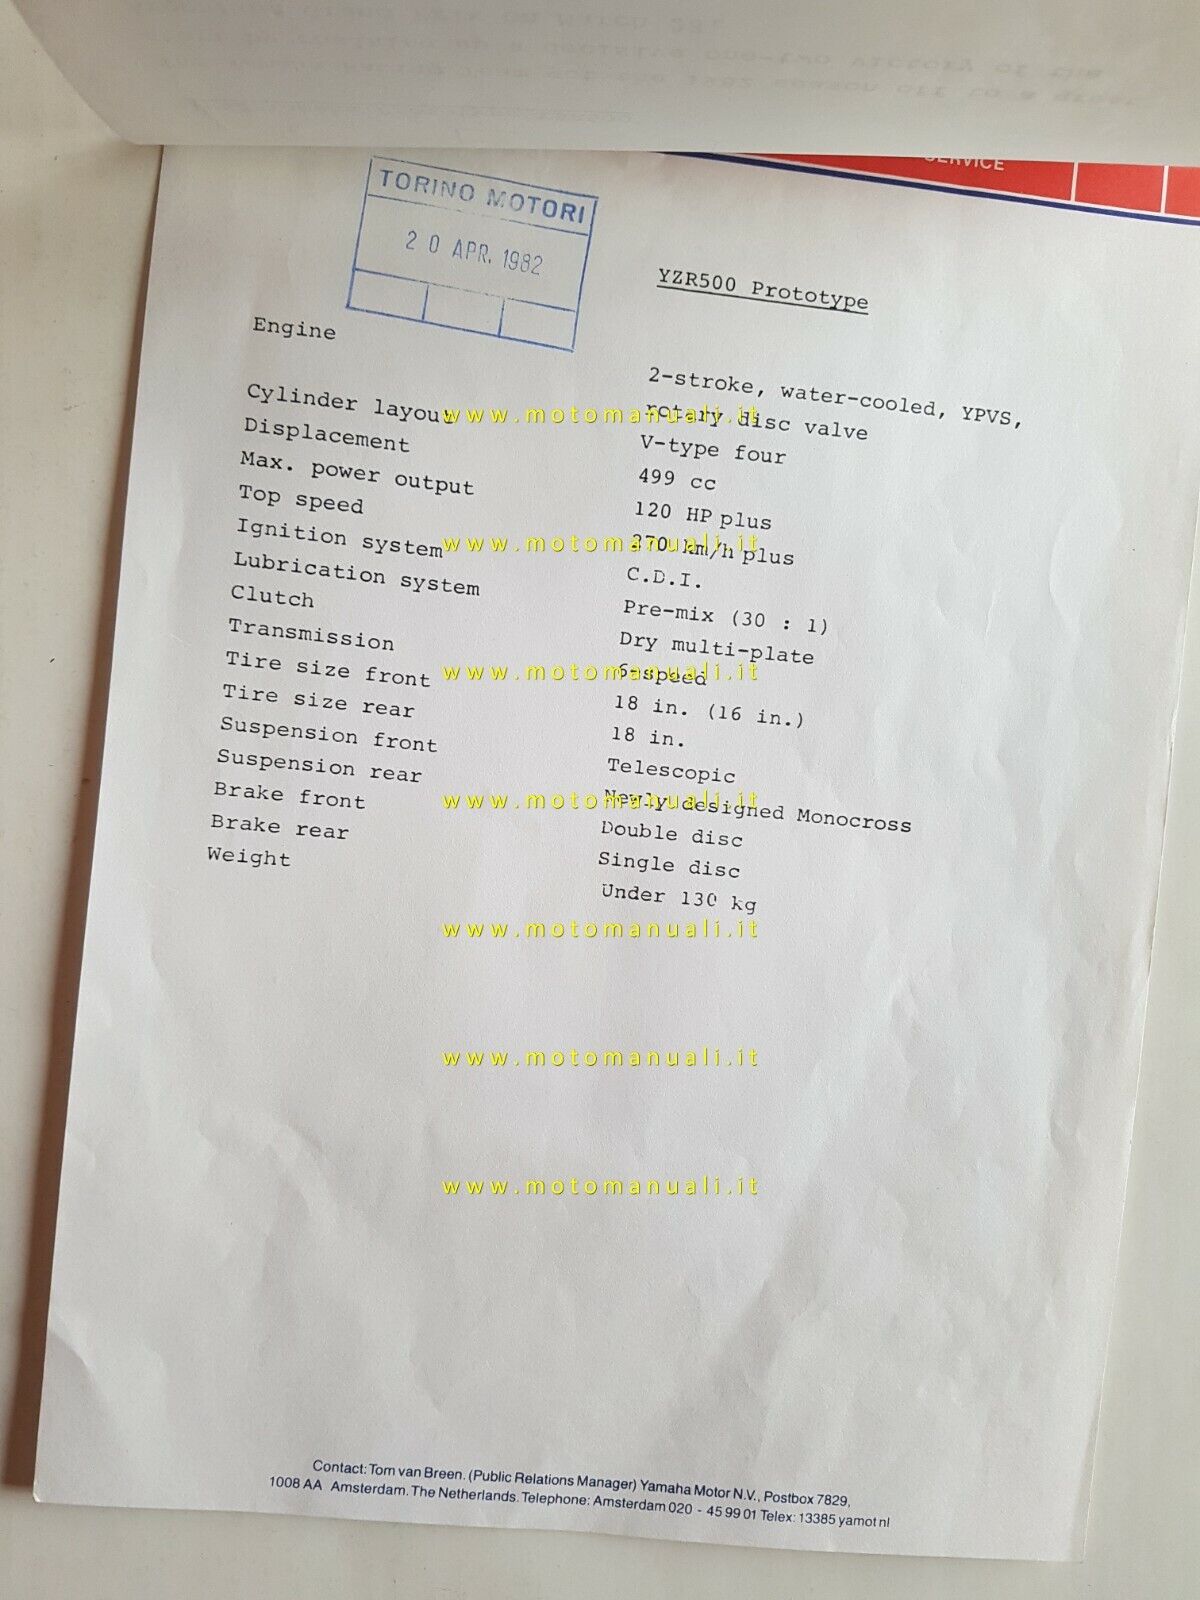 SERVICE
TORINO MOTORI
20 APR. 1982
YZR500 Prototype
Engine 2-stroke, water-cooled, YPVS,
rotary disc valve
Cylinder layout V-type four
Displacement 499 cc
Max. power output 120 HP plus
Top speed 270 km/h plus
Ignition system C.D.I.
Lubrication system Pre-mix (30 : 1)
Clutch Dry multi-plate
Transmission 6-speed
Tire size front 18 in. (16 in.)
Tire size rear 18 in.
Suspension front Telescopic
Suspension rear Newly designed Monocross
Brake front Double disc
Brake rear Single disc
Weight Under 130 kg
www.motomanuali.it
www.motomanuali.it
www.motomanuali.it
www.motomanuali.it
www.motomanuali.it
www.motomanuali.it
www.motomanuali.it
Contact: Tom van Breen. (Public Relations Manager) Yamaha Motor N.V., Postbox 7829,
1008 AA Amsterdam. The Netherlands. Telephone: Amsterdam 020 - 45 99 01 Telex: 13385 yamot nl